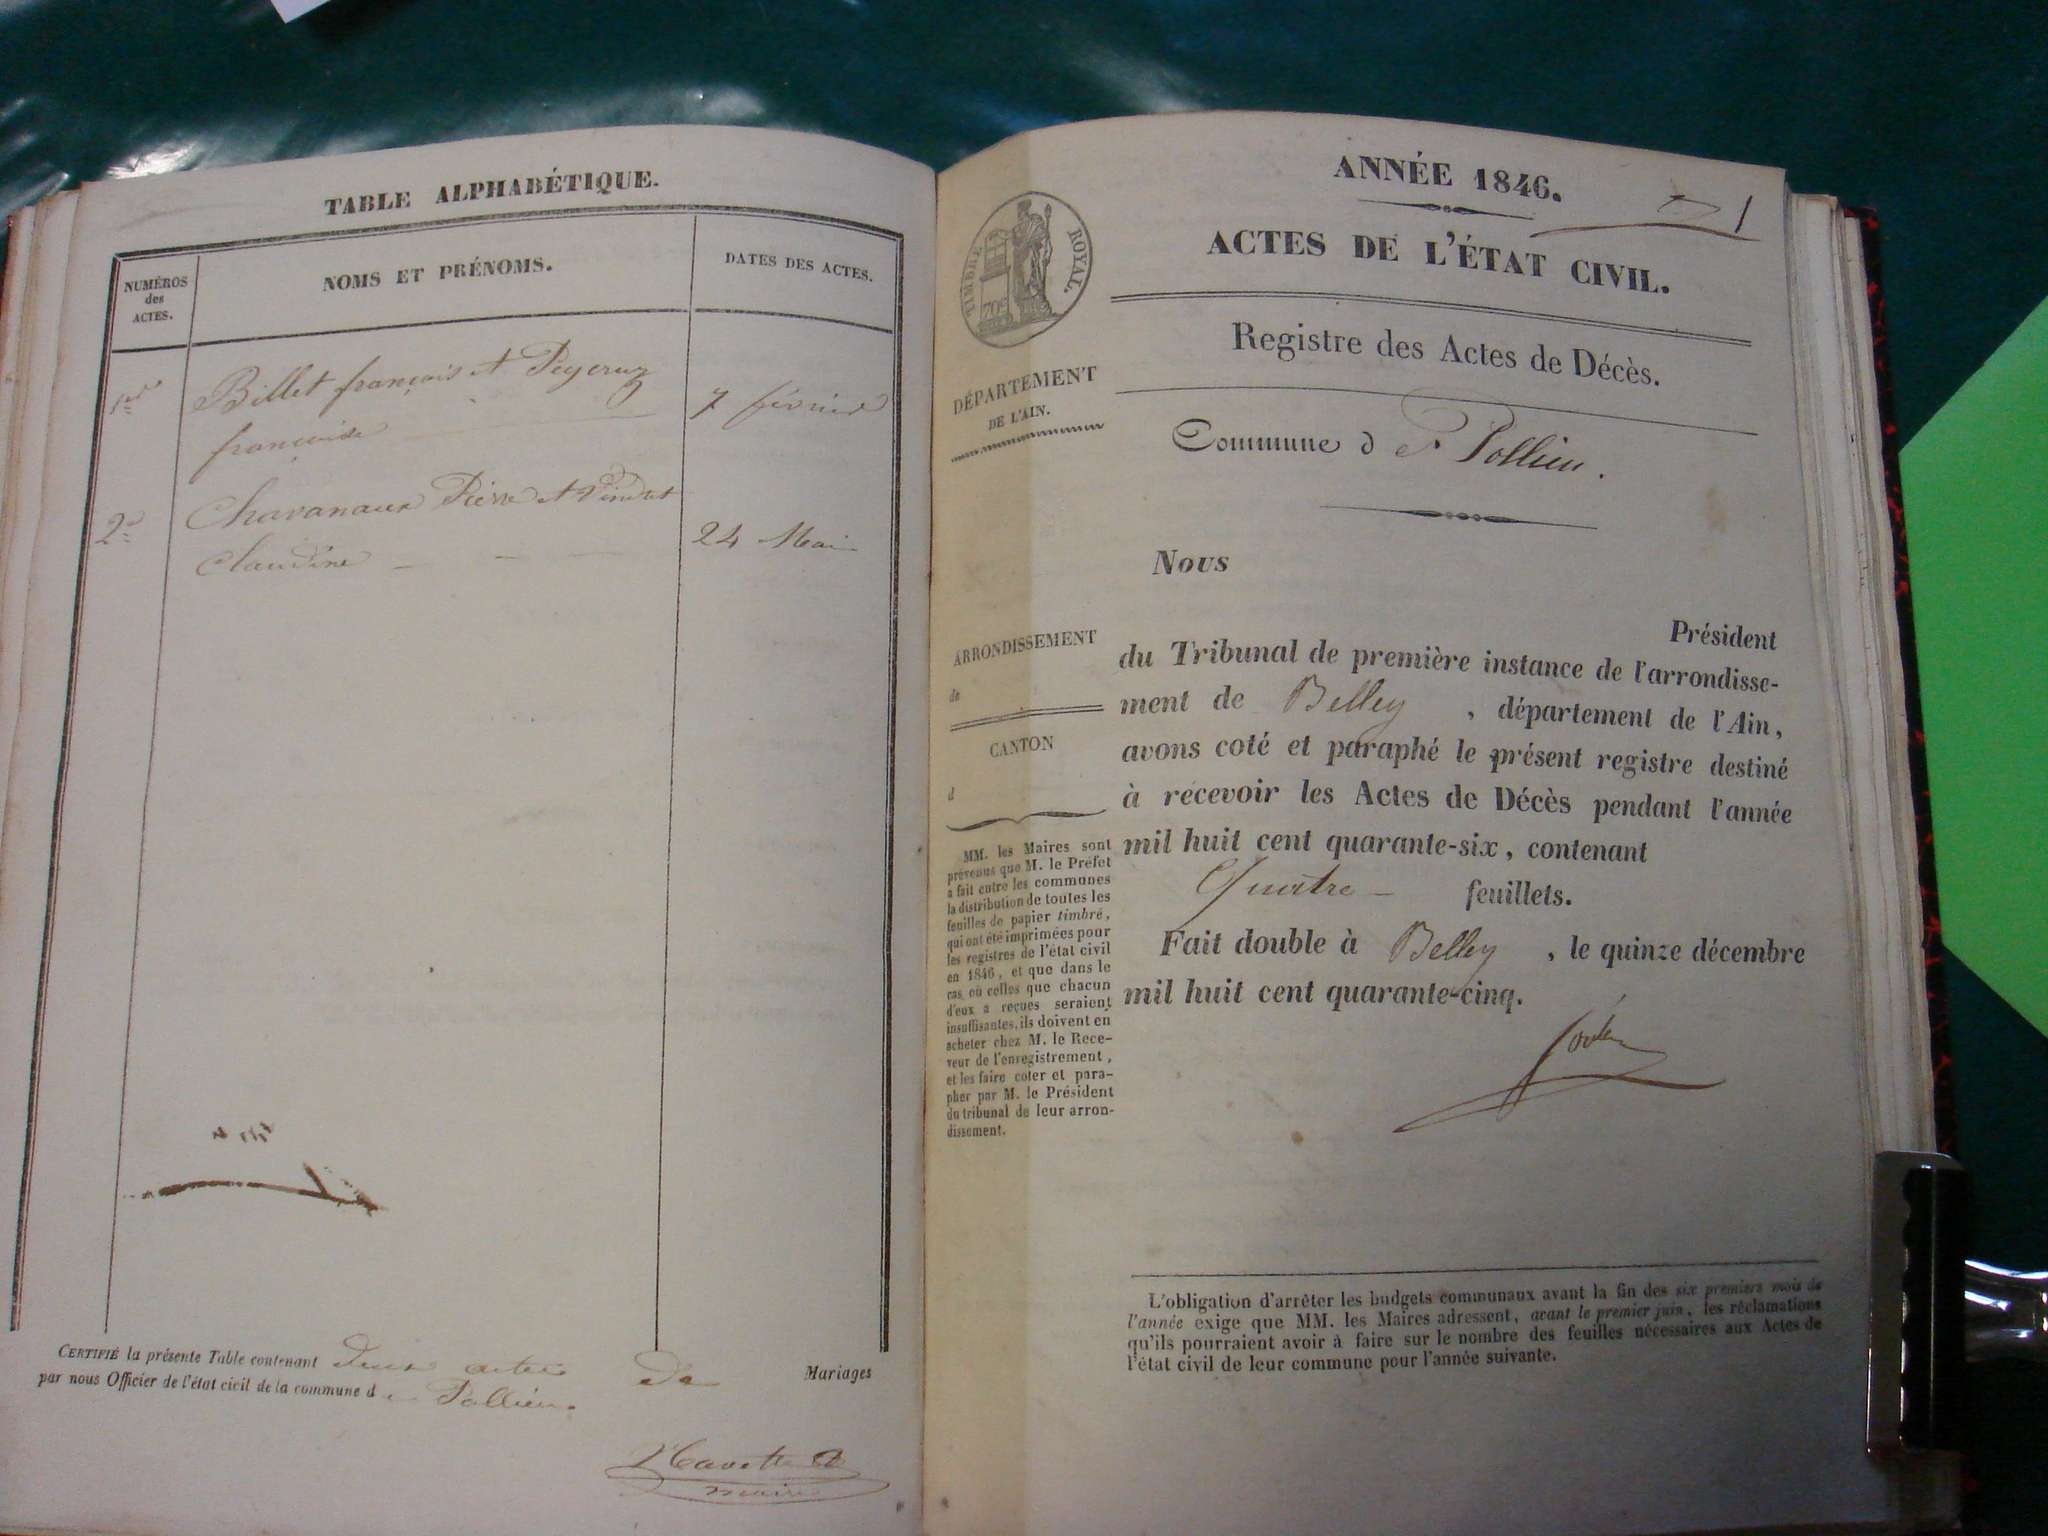 TABLE ALPHABÉTIQUE.
NUMÉROS
des
ACTES.
NOMS ET PRÉNOMS.
DATES DES ACTES.
1er Billet françois et Peycruz
françoise
7 février
2d Chavanaux Pierre et
Claudine
24 Mai
CERTIFIÉ la présente Table contenant deux actes de Mariages
par nous Officier de l'état civil de la commune de Pollieu.
maire
ANNÉE 1846.
1
ACTES DE L'ÉTAT CIVIL.
TIMBRE ROYAL.
70c
Registre des Actes de Décès.
DÉPARTEMENT
DE L'AIN.
Commune de Pollieu.
Nous
Président
du Tribunal de première instance de l'arrondisse-
ment de Belley, département de l'Ain,
avons coté et paraphé le présent registre destiné
à recevoir les Actes de Décès pendant l'année
mil huit cent quarante-six, contenant
Quatre feuillets.
Fait double à Belley, le quinze décembre
mil huit cent quarante-cinq.
ARRONDISSEMENT
de
CANTON
d
MM. les Maires sont
prévenus que M. le Préfet
a fait entre les communes
la distribution de toutes les
feuilles de papier timbré,
qui ont été imprimées pour
les registres de l'état civil
en 1846, et que dans le
cas où celles que chacun
d'eux a reçues seraient
insuffisantes, ils doivent en
acheter chez M. le Rece-
veur de l'enregistrement,
et les faire coter et para-
pher par M. le Président
du tribunal de leur arron-
dissement.
L'obligation d'arrêter les budgets communaux avant la fin des six premiers mois de
l'année exige que MM. les Maires adressent, avant le premier juin, les réclamations
qu'ils pourraient avoir à faire sur le nombre des feuilles nécessaires aux Actes de
l'état civil de leur commune pour l'année suivante.